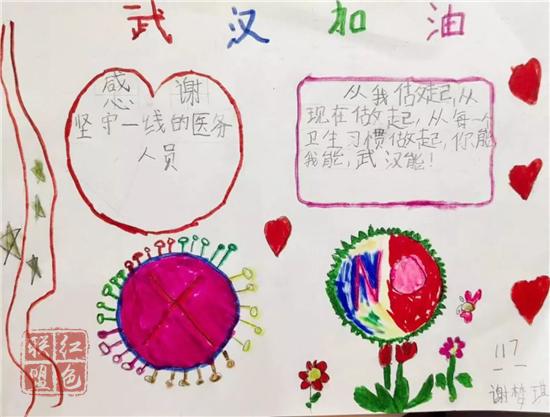 武汉加油
感谢
坚守一线的医务
人员
从我做起,从
现在做起,从每一个
卫生习惯做起,你能
我能,武汉能!
N
117
谢梦琪
红色
联盟